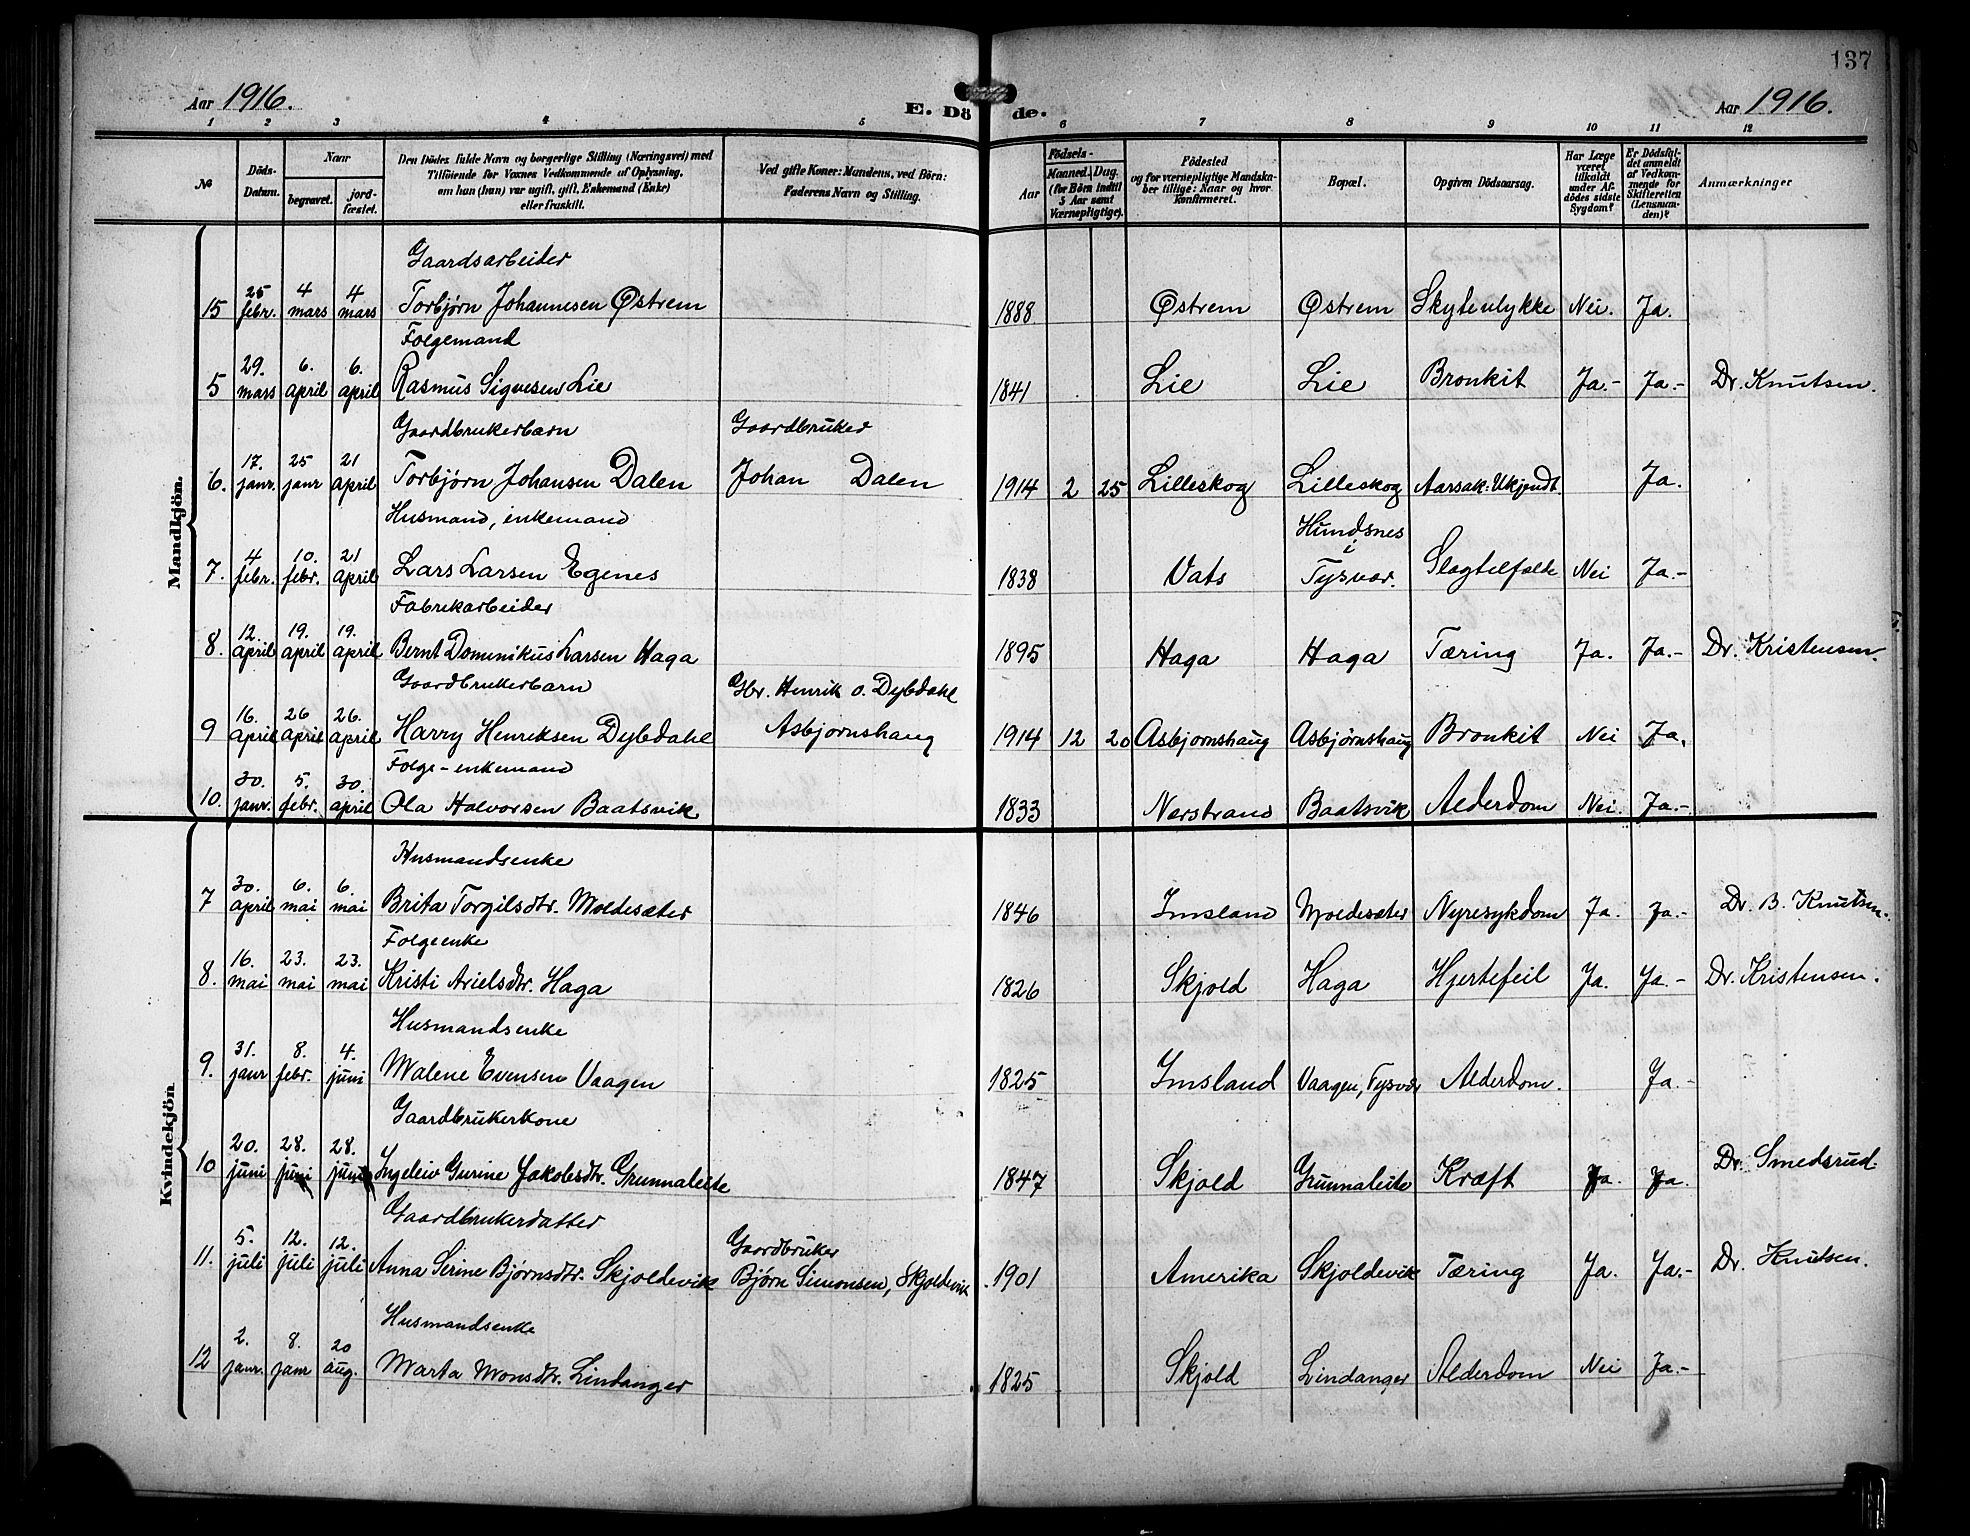 137
Aar 1916.
E. Döde.
Aar 1916.
1 2 3 4 5 6 7 8 9 10 11 12
№
Döds-Datum.
Naar
begravet.
jordfæstet.
Den Dödes fulde Navn og borgerlige Stilling (Næringsvei) med
Tilföiende for Voxnes Vedkommende af Oplysning,
om han (hun) var ugift, gift, Enkemand (Enke)
eller fraskilt.
Ved gifte Koner: Mandens, ved Börn:
Faderens Navn og Stilling.
Födsels-
Aar
Maaned. Dag.
(for Börn indtil
5 Aar samt
Værnepligtige).
Födested
og for værnepligtige Mandskaber tillige: Naar og hvor
konfirmeret.
Bopæl.
Opgiven Dödsaarsag.
Har Læge
været
tilkaldt
under Afdödes sidste
Sygdom?
Er Dödsfaldet anmeldt
af Vedkommende for
Skifteretten
(Lensmanden)?
Anmærkninger
Mandkjön.
Gaardsarbeider
15 25 febr. 4 mars 4 mars Torbjørn Johannesen Østrem 1888 Østrem Østrem Skyteulykke Nei. Ja.
Folgemand
5 29. mars 6. april 6. april Rasmus Sigvesen Lie 1841 Lie Lie Bronkit Ja.- Ja.- Dr. Knutsen.
Gaardbrukerbarn Gaardbruker
6. 17. janr. 25 janr 21 april Torbjørn Johansen Dalen Johan Dalen 1914 2 25 Lilleskog Lilleskog Aarsak: Ukjendt. Ja.
Husmand, enkemand Hundsnes i
7. 4 febr. 10. febr. 21 april Lars Larsen Egenes 1838 Vats Tysvær. Slagtelfælde Nei Ja.-
Fabrikarbeider
8. 12. april 19. april 19. april Bernt Dominikus Larsen Haga 1895 Haga Haga Tæring Ja. Ja.- Dr. Kristensen.
Gaardbrukerbarn Gbr. Henrik O. Dybdahl
9 16. april 26 april 26. april Harry Henriksen Dybdahl Asbjørnshaug 1914 12 20 Asbjørnshaug Asbjørnshaug Bronkit Nei Ja.
Folge-enkemand
10. 30. janr. 5. febr. 30. april Ola Halvorsen Baatsvik 1833 Nerstrand Baatsvik Alderdom Nei. Ja.-
Kvindekjön
Husmandsenke
7 30. april 6. mai 6. mai Brita Torgilsdtr. Moldesæter 1846 Imsland Moldesæter Nyresykdom Ja. Ja.- Dr. B. Knutsen.
Folgeenke
8. 16. mai 23. mai 23. mai Kristi Arielsdtr. Haga 1826 Skjold Haga Hjertefeil Ja. Ja.- Dr. Kristensen.
Husmandsenke
9. 31. janr 8. febr. 4. juni Malene Evensen Vaagen 1825 Imsland Vaagen, Tysvær Alderdom. Ja.-
Gaardbrukerkone
10 20. juni 28. juni 28. juni Ingeleiv Gurine Jakobsdtr. Grunnaleite 1847 Skjold Grunnaleite Kræft Ja. Ja. Dr. Smedsrud.
Gaardbrukerdatter Gaardbruker
11. 5. juli 12. juli 12. juli Anna Serine Bjørnsdtr. Skjoldevik Bjørn Simonsen, Skjoldevik 1901 Amerika Skjoldevik Tæring Ja. Ja.- Dr. Knutsen.
Husmandsenke
12 2. janr. 8. janr 20 aug. Marta Monsdtr. Lindanger 1825 Skjold Lindanger Alderdom Nei Ja.-